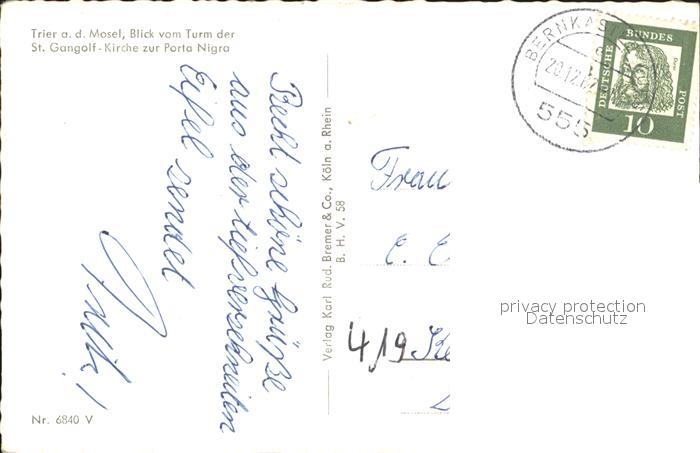 Trier a. d. Mosel, Blick vom Turm der
St. Gangolf-Kirche zur Porta Nigra
Recht schöne Grüße
aus der tiefverschneiten
Eifel sendet
Verlag Karl Rud. Bremer & Co., Köln a. Rhein
B. H. V. 58
Nr. 6840 V
BERNKAS
20.12.6
555
DEUTSCHE
BUNDES
POST
Dürer
10
Frau
C. E
4/19 Ke
privacy protection
Datenschutz